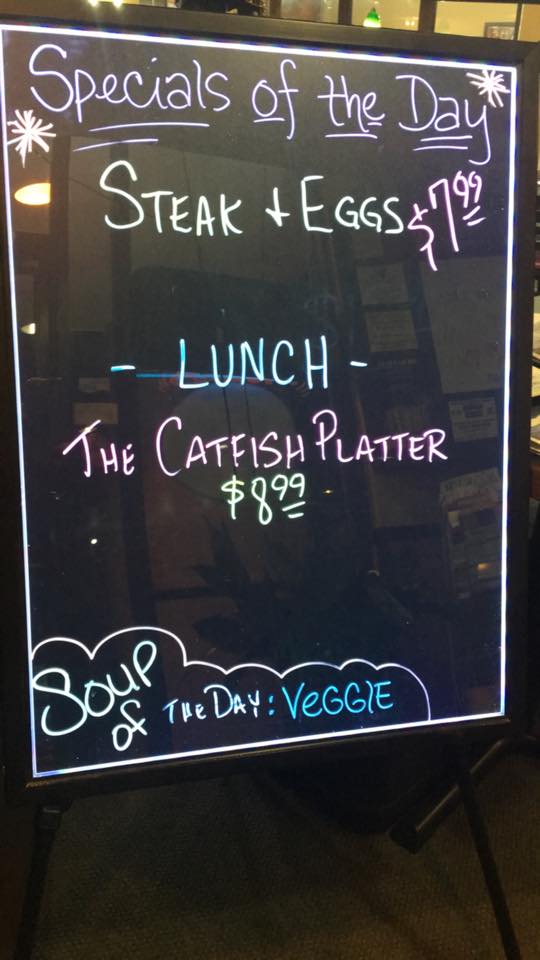 Specials of the Day
STEAK + EGGS $7.99
- LUNCH -
THE CATFISH PLATTER
$8.99
SOUP
of THE DAY: VEGGIE